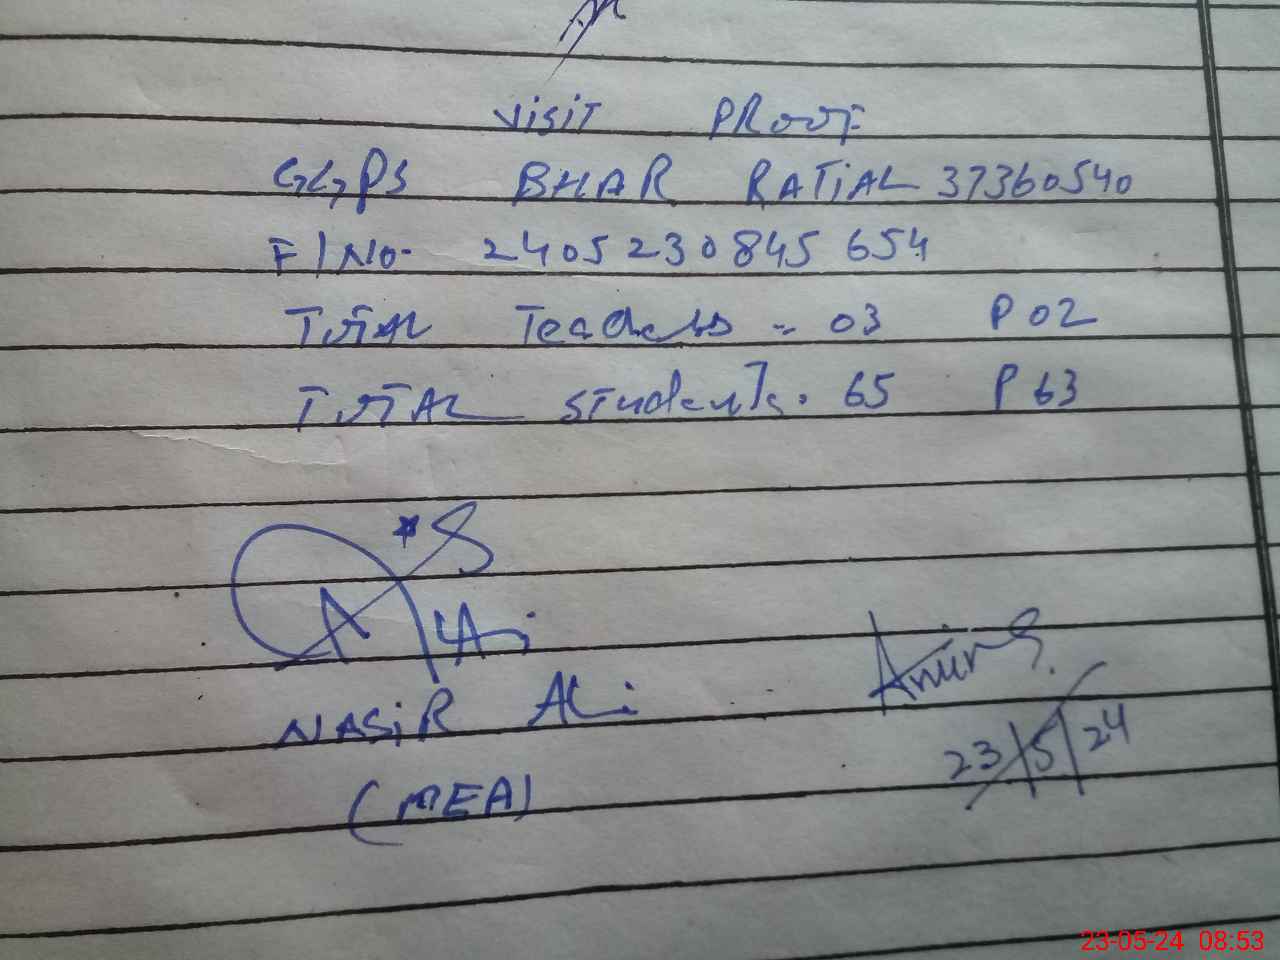 Visit PROOF
GGPS BHAR RATIAL 37360540
F/No- 2405230845654
TOTAL Teachers - 03 P 02
TOTAL Students. 65 P 63
NASiR ALi
(MEA)
23/5/24
23-05-24 08:53